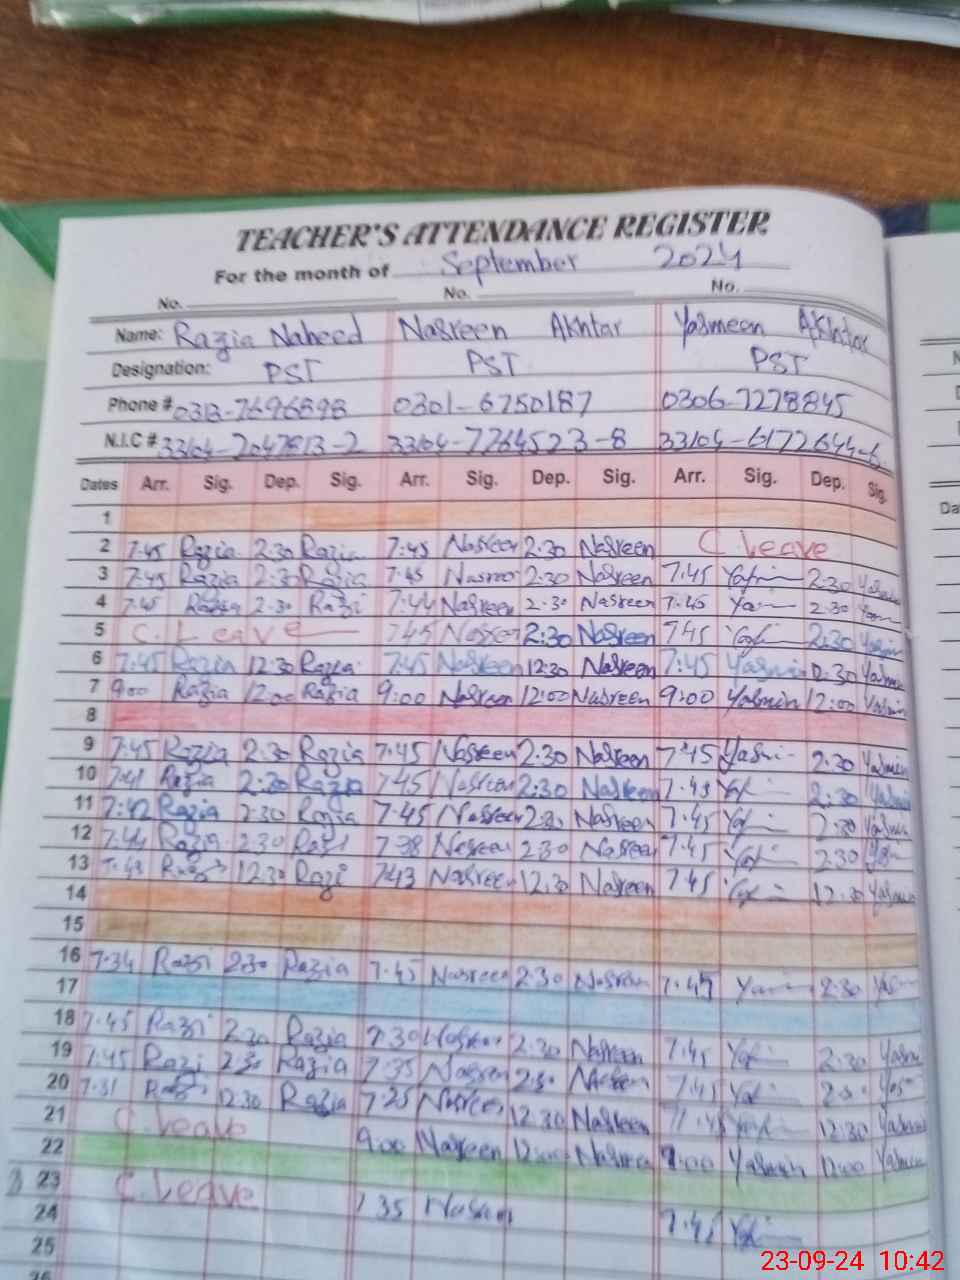 TEACHER'S ATTENDANCE REGISTER
For the month of September 2024
No. No. No.
Name: Razia Naheed Nasreen Akhtar Yasmeen Akhtar
Designation: PST PST PST
Phone # 0313-7696898 0301-6750187 0306-7278845
N.I.C # 33104-2047813-2 33104-7764523-8 33104-6172644-6
Dates Arr. Sig. Dep. Sig. Arr. Sig. Dep. Sig. Arr. Sig. Dep. Sig.
1
2 7:45 Razia 2:30 Razia 7:45 Nasreen 2:30 Nasreen C. Leave
3 7:45 Razia 2:30 Razia 7:45 Nasreen 2:30 Nasreen 7:45 2:30
4 7:45 Razia 2:30 Razi 7:44 Nasreen 2:30 Nasreen 7:45 2:30
5 C. Leave 745 Nasreen 2:30 Nasreen 745 2:30
6 7:45 Razia 12:30 Razia 7:45 Nasreen 12:30 Nasreen 7:45 Yasmin 12:30 Yasmin
7 9:00 Razia 12:00 Razia 9:00 Nasreen 12:00 Nasreen 9:00 Yasmin 12:00 Yasmin
8
9 7:45 Razia 2:30 Razia 7:45 Nasreen 2:30 Nasreen 7:45 Yasmi 2:30 Yasmin
10 7:41 Razia 2:30 Razia 745 Nasreen 2:30 Nasreen 7:45 2:30 Yasmin
11 7:42 Razia 2:30 Razia 7:45 Nasreen 2:30 Nasreen 7:45 2:30 Yasmin
12 7:44 Razia 2:30 Razi 738 Nasreen 230 Nasreen 7:45 230
13 7:43 12:30 Razi 743 Nasreen 12:30 Nasreen 7:45 12:30 Yasmin
14
15
16 7:34 Razi 2:30 Razia 7:45 Nasreen 2:30 Nasreen 7:45 2:30
17
18 7:45 Razi 2:30 Razia 7:30 Nasreen 2:30 Nasreen 7:45 2:30 Yasmi
19 7:45 Razi 2:30 Razia 7:35 Nasreen 2:30 Nasreen 7:45 2:30
20 7:31 Razi 12:30 Razia 7:25 Nasreen 12:30 Nasreen 7:45 12:30 Yasmin
21 C. Leave 9:00 Nasreen 12:00 Nasreen 9:00 Yasmin 12:00 Yasmin
22
23 C. Leave 7:35 Nasreen 7:45
24
25
26
23-09-24 10:42